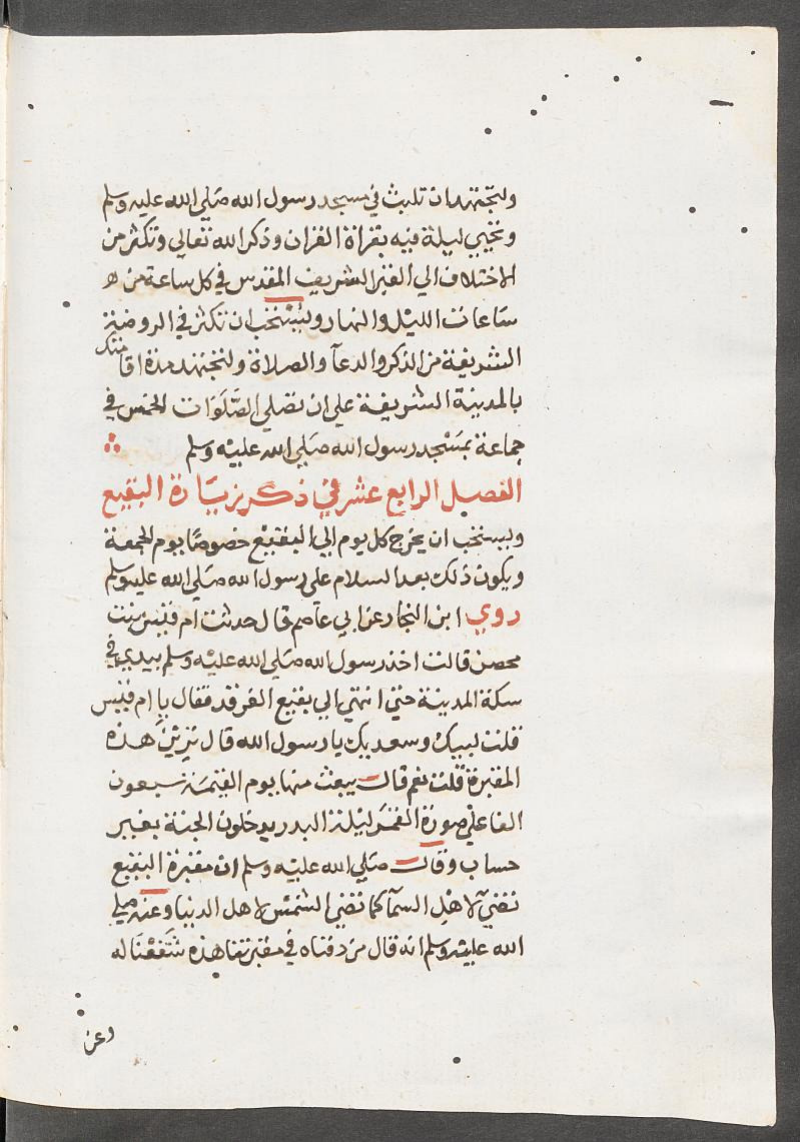 وليجتهد ان تلبث في مسجد رسول الله صلي الله عليه وسلم
وتحيي ليلة فيه بقراة القران وذكر الله تعالي وتكثر من
الاختلاف الي القبر الشريف المقدس في كل ساعة من ه
ساعات الليل والنهار ويستحب ان تكثر في الروضة
الشريفة من الذكر والدعآ والصلاة ولتجتهد مدة اقامتك
بالمدينة الشريفة علي ان تصلي الصَّلَوَات الخمس في
جماعة بمسْجد رسول الله صلي الله عليه وسلم
الفصل الرابع عشر في ذكر زيارة البقيع
ويستحب ان يخرج كل يوم الي البقيع خصوصًا يوم الجمعة
ويكون ذلك بعد السلام علي رسول الله صلي الله عليه وسلم
روي ابن النجار عن ابي عاصم قال حدثت ام قيس بنت
محصن قالت اخذ رسول الله صلي الله عليه وسلم بيدي في
سكة المدينة حتي انتهي الي بقيع الغرقد فقال يا ام قيس
قلت لبيك وسعديك يا رسول الله قال ترين هذه
المقبرة قلت نعم قال يبعث منها يوم القيمة سبعون
الفا علي صورة القمر ليلة البدر يدخلون الجنة بغير
حساب وقال صلي الله عليه وسلم ان مقبرة البقيع
تضيء لاهل السمآ كما تضي الشمس لاهل الدنيا وعنه صلي
الله عليه وسلم انه قال من دفناه في مقبرتنا هذه شفعنا له
وعن